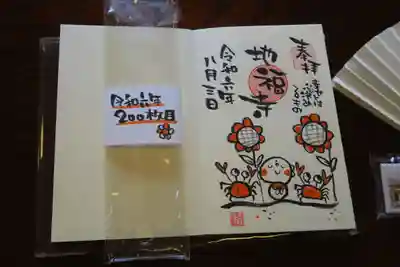 奉拝
幸せは
地福寺
令和六年
八月三日
令和六年
200枚目